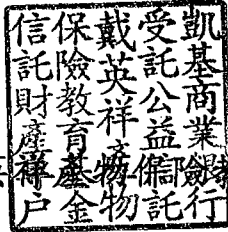 凱基商業銀行
受託公益信託
戴英祥
保險教育基金
信託財產專戶